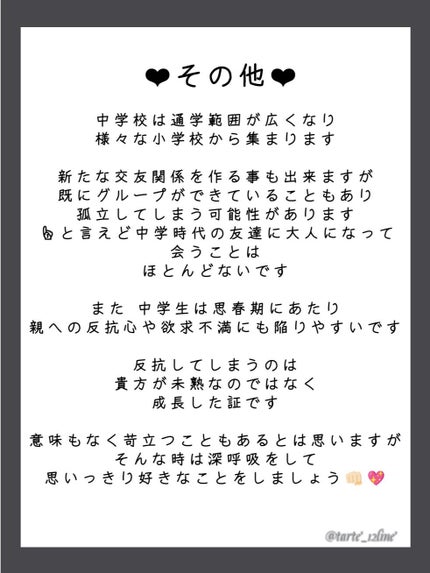 ❤その他❤
中学校は通学範囲が広くなり
様々な小学校から集まります
新たな交友関係を作る事も出来ますが
既にグループができていることもあり
孤立してしまう可能性があります
と言えど中学時代の友達に大人になって
会うことは
ほとんどないです
また 中学生は思春期にあたり
親への反抗心や欲求不満にも陥りやすいです
反抗してしまうのは
貴方が未熟なのではなく
成長した証です
意味もなく苛立つこともあるとは思いますが
そんな時は深呼吸をして
思いっきり好きなことをしましょう👊🏻💖
@tarte_12line